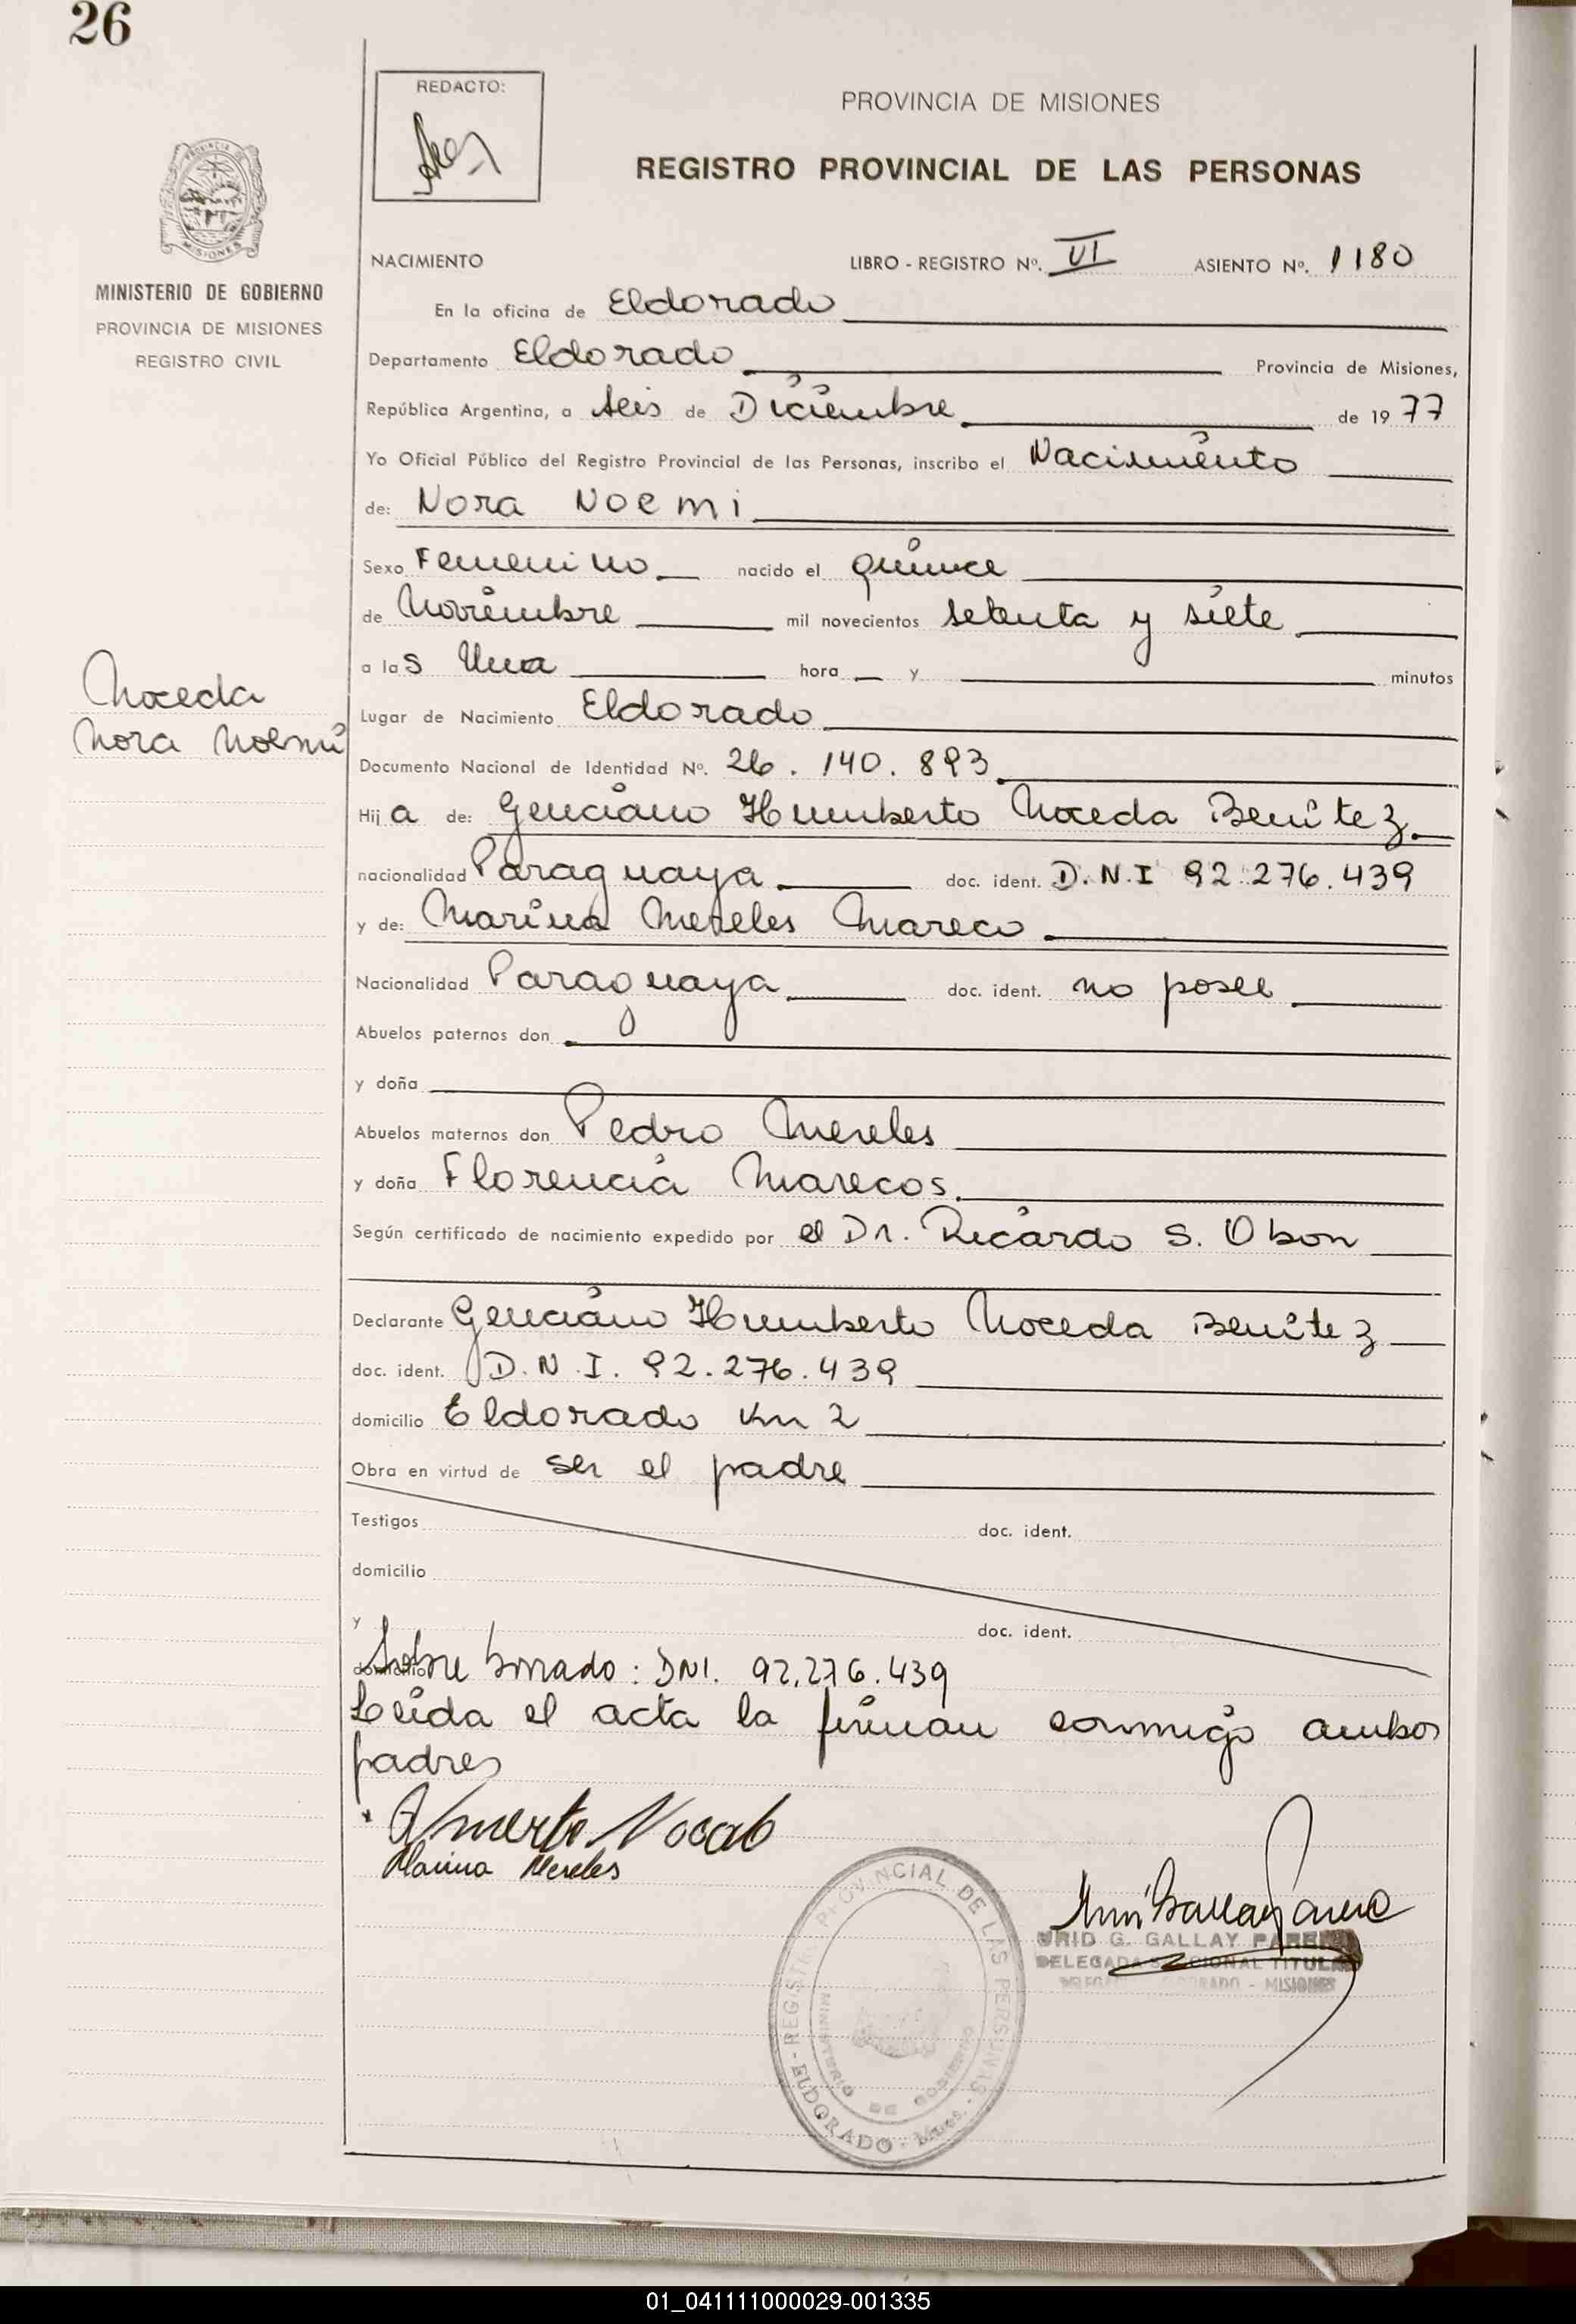 26
REDACTO:
PROVINCIA DE MISIONES
REGISTRO PROVINCIAL DE LAS PERSONAS
PROVINCIA
MISIONES
MINISTERIO DE GOBIERNO
PROVINCIA DE MISIONES
REGISTRO CIVIL
NACIMIENTO LIBRO - REGISTRO Nº. VI ASIENTO Nº. 1180
En la oficina de Eldorado
Departamento Eldorado Provincia de Misiones,
República Argentina, a seis de Diciembre de 1977
Yo Oficial Público del Registro Provincial de las Personas, inscribo el Nacimiento
de: Nora Noemi
Sexo Femenino nacido el quince
de Noviembre mil novecientos setenta y siete
a las Una hora y minutos
Noceda
Nora Noemi
Lugar de Nacimiento Eldorado
Documento Nacional de Identidad Nº. 26.140.893
Hija de: Genciano Humberto Noceda Benitez
nacionalidad Paraguaya doc. ident. D.N.I 92.276.439
y de: Marina Mereles Mareco
Nacionalidad Paraguaya doc. ident. no posee
Abuelos paternos don
y doña
Abuelos maternos don Pedro Mereles
y doña Florencia Marecos
Según certificado de nacimiento expedido por el Dr. Ricardo S. Obon
Declarante Genciano Humberto Noceda Benitez
doc. ident. D.N.I. 92.276.439
domicilio Eldorado Km 2
Obra en virtud de ser el padre
Testigos doc. ident.
domicilio
y doc. ident.
domicilio Sobre borrado: DNI. 92.276.439
Leida el acta la firman conmigo ambos
padres
Marina Mereles
REGISTRO PROVINCIAL DE LAS PERSONAS
MINISTERIO DE GOBIERNO
- ELDORADO - Mnes. -
G. GALLAY
DELEGADA SECCIONAL TITULAR
MISIONES
01_041111000029-001335